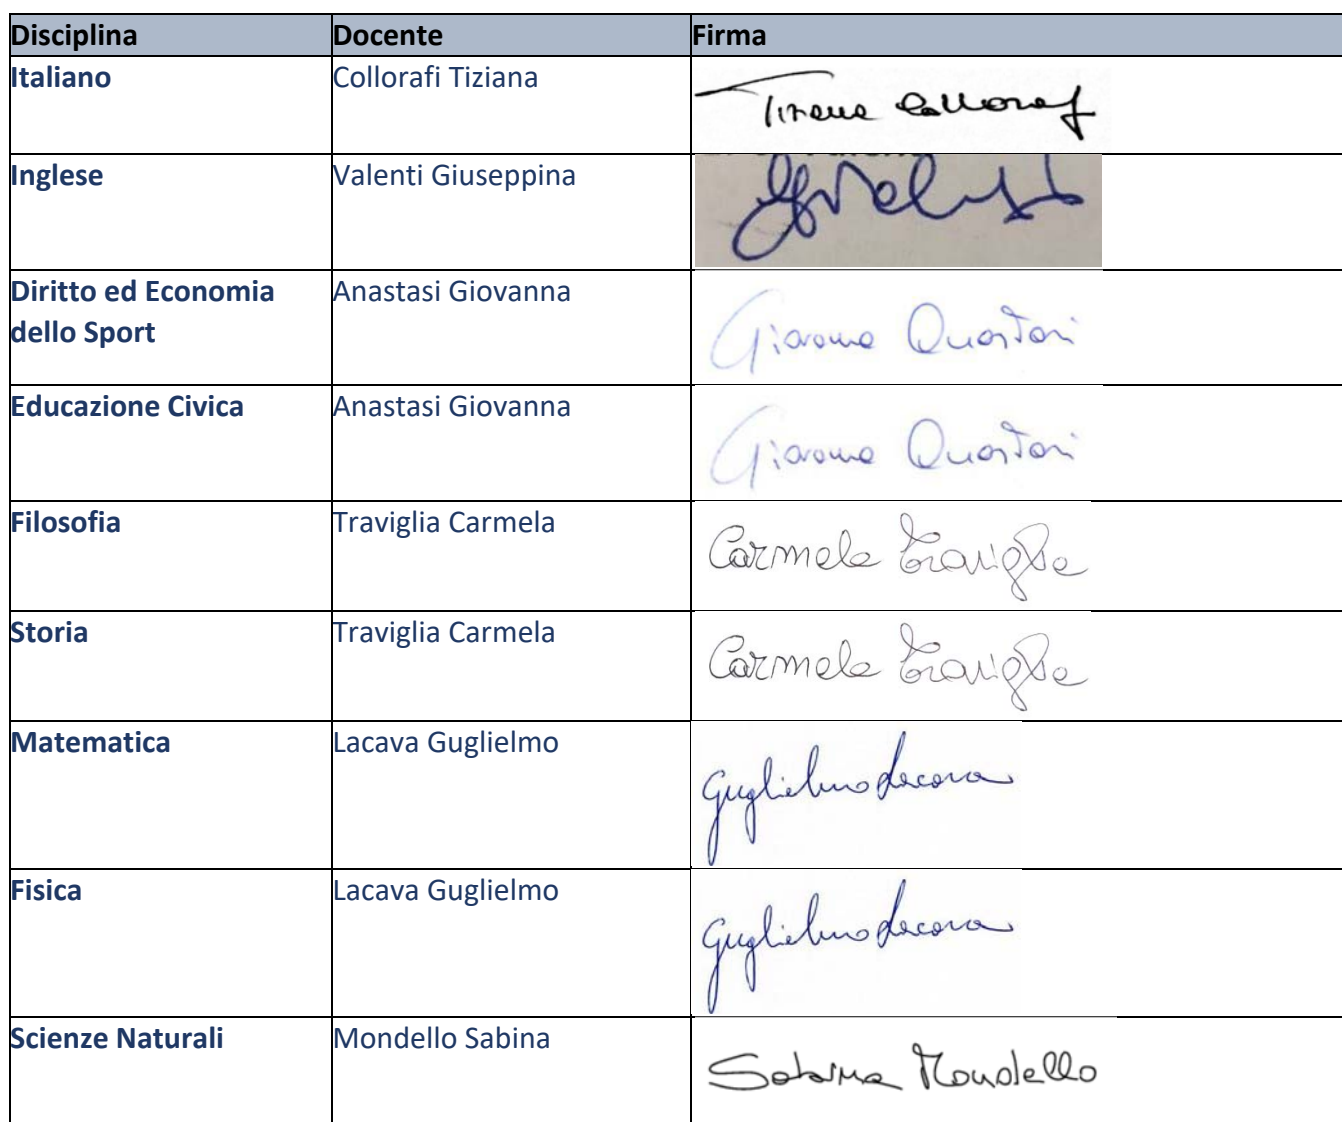 Disciplina Docente Firma
Italiano Collorafi Tiziana Tiziana Collorafi
Inglese Valenti Giuseppina
Diritto ed Economia Anastasi Giovanna Giovanna Anastasi
dello Sport
Educazione Civica Anastasi Giovanna Giovanna Anastasi
Filosofia Traviglia Carmela Carmela Traviglia
Storia Traviglia Carmela Carmela Traviglia
Matematica Lacava Guglielmo Guglielmo Lacava
Fisica Lacava Guglielmo Guglielmo Lacava
Scienze Naturali Mondello Sabina Sabina Mondello